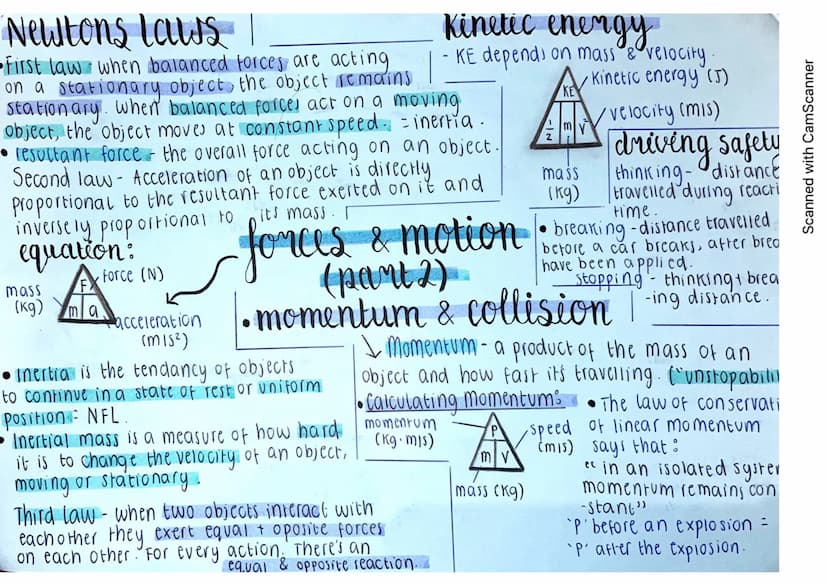 Newtons laws
•First law - when balanced forces are acting
on a stationary object, the object remains
stationary. When balanced forces act on a moving
object, the object moves at constant speed. = inertia.
• resultant force - the overall force acting on an object.
Second law - Acceleration of an object is directly
proportional to the resultant force exerted on it and
inversely proportional to its mass.
equation:
force (N)
mass
(kg)
F
m a
acceleration
(m/s²)
Kinetic energy
- KE depends on mass & velocity.
Kinetic energy (J)
KE
velocity (m/s)
1/2 m v²
mass
(kg)
driving safety
thinking - distance
travelled during reacti
time.
• breaking - distance travelled
before a car breaks, after brea
have been applied.
stopping - thinking + brea
-ing distance.
forces & motion
(part 2)
• momentum & collision
Momentum - a product of the mass of an
object and how fast it's travelling. ("unstopabili
• Calculating momentum:
momentum
(kg·m/s)
P
m v
speed
(m/s)
mass (kg)
• The law of conservati
of linear momentum
says that:
"in an isolated system
momentum remains con
-stant"
'P' before an explosion =
'P' after the explosion.
• Inertia is the tendancy of objects
to continue in a state of rest or uniform
position = NFL.
• Inertial mass is a measure of how hard
it is to change the velocity of an object,
moving or stationary.
Third law - when two objects interact with
each other they exert equal + opposite forces
on each other. For every action. There's an
equal & opposite reaction.
Scanned with CamScanner